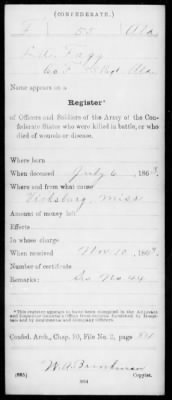 (CONFEDERATE.)
F 55 Ala
Co. F 55 Regt. Ala.
Name appears on a
Register*
of Officers and Soldiers of the Army of the Confederate States who were killed in battle, or who died of wounds or disease.
Where born
When deceased July 6, 186
Where and from what cause
Vicksburg, Miss
Amount of money left
Effects
In whose charge
When received Nov 10, 186
Number of certificate
Remarks: No 44
*This register appears to have been compiled in the Adjutant and Inspector General's office from reports furnished by Hospitals and by Regimental and Company officers.
Confed. Arch., Chap. 10, File No. 2, page
Copyist.